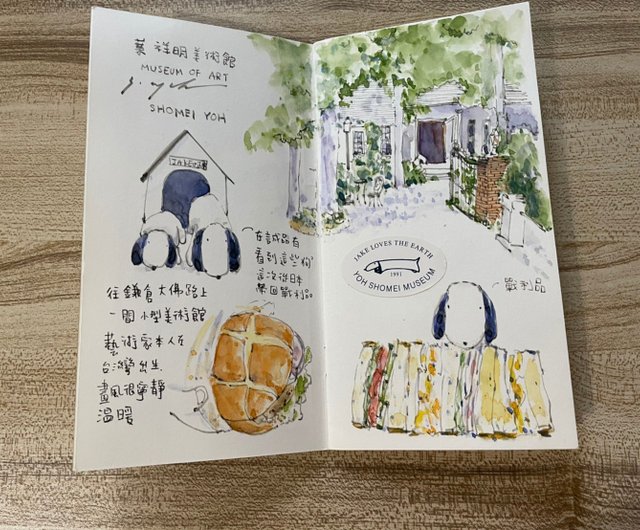 葉祥明美術館
MUSEUM OF ART
SHOMEI YOH
在誠品有
看到這些狗
這次從日本
帶回戰利品
往鎌倉大佛路上
一間小型美術館
藝術家本人在
台灣出生
畫風很寧靜
溫暖
JAKE LOVES THE EARTH
1991
YOH SHOMEI MUSEUM
戰利品